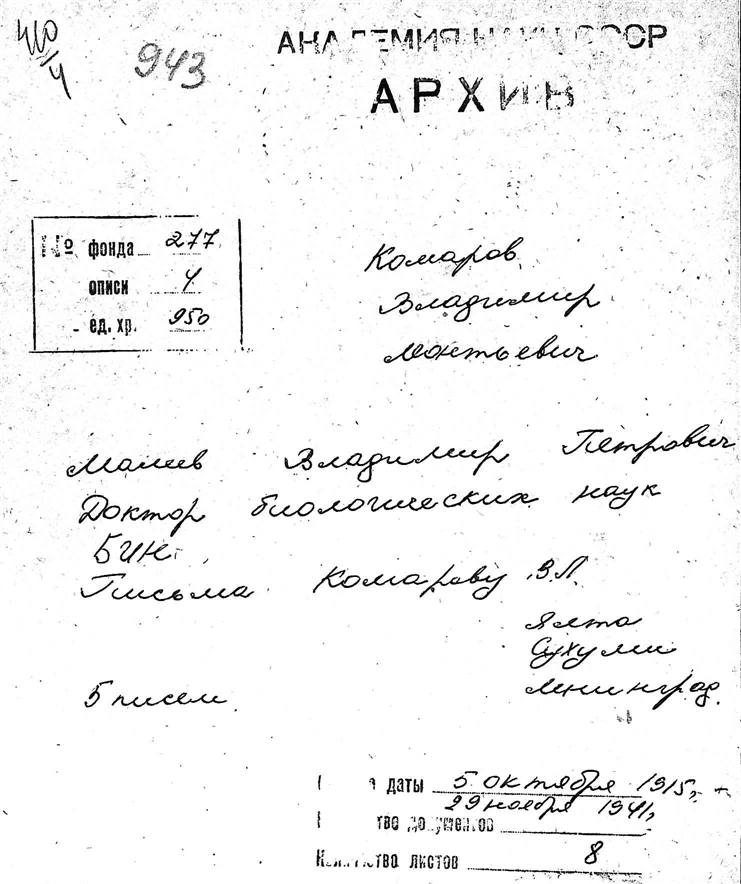 410/4
943
АКАДЕМИЯ НАУК СССР
АРХИВ
№ фонда 277
описи 4
ед. хр. 950
Комаров
Владимир
Леонтьевич
Малеев Владимир Петрович
Доктор биологических наук
БИН
Письма Комарову В.Л.
Ялта
Сухуми
Ленинград.
5 писем.
даты 5 октября 1915г. -
29 ноября 1941г.
тво документов
Количество листов 8